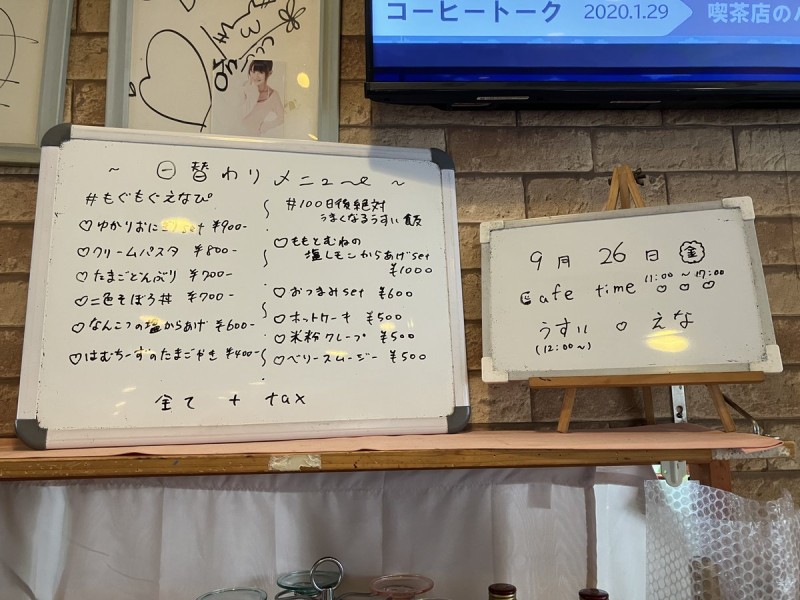 コーヒートーク 2020.1.29 喫茶店の
~ 日替わりメニュー ~
#もぐもぐえなぴ
♡ゆかりおにぎりset ¥900-
♡クリームパスタ ¥800-
♡たまごどんぶり ¥700-
♡二色そぼろ丼 ¥700-
♡なんこつの塩からあげ ¥600-
♡はむちーずのたまごやき ¥400-
#100日後絶対
うまくなるうすい飯
♡ももとむねの
塩レモンからあげset
¥1000
♡おつまみset ¥600
♡ホットケーキ ¥500
♡米粉クレープ ¥500
♡ベリースムージー ¥500
全て + tax
9月 26日 金
Cafe time 11:00~17:00
うすい ♡ えな
(12:00~)